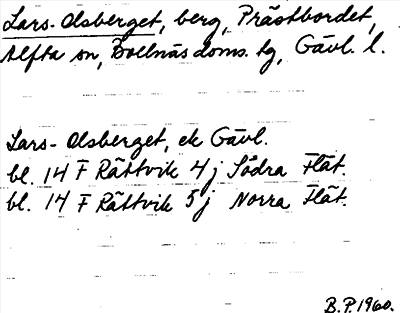 Lars-Olsberget, berg, Prästbordet,
Alfta sn, Bollnäs doms. tg, Gävl. l.
Lars-Olsberget, ek Gävl.
bl. 14 F Rättvik 4 j Södra Flät.
bl. 14 F Rättvik 5 j Norra Flät.
B.P. 1960.